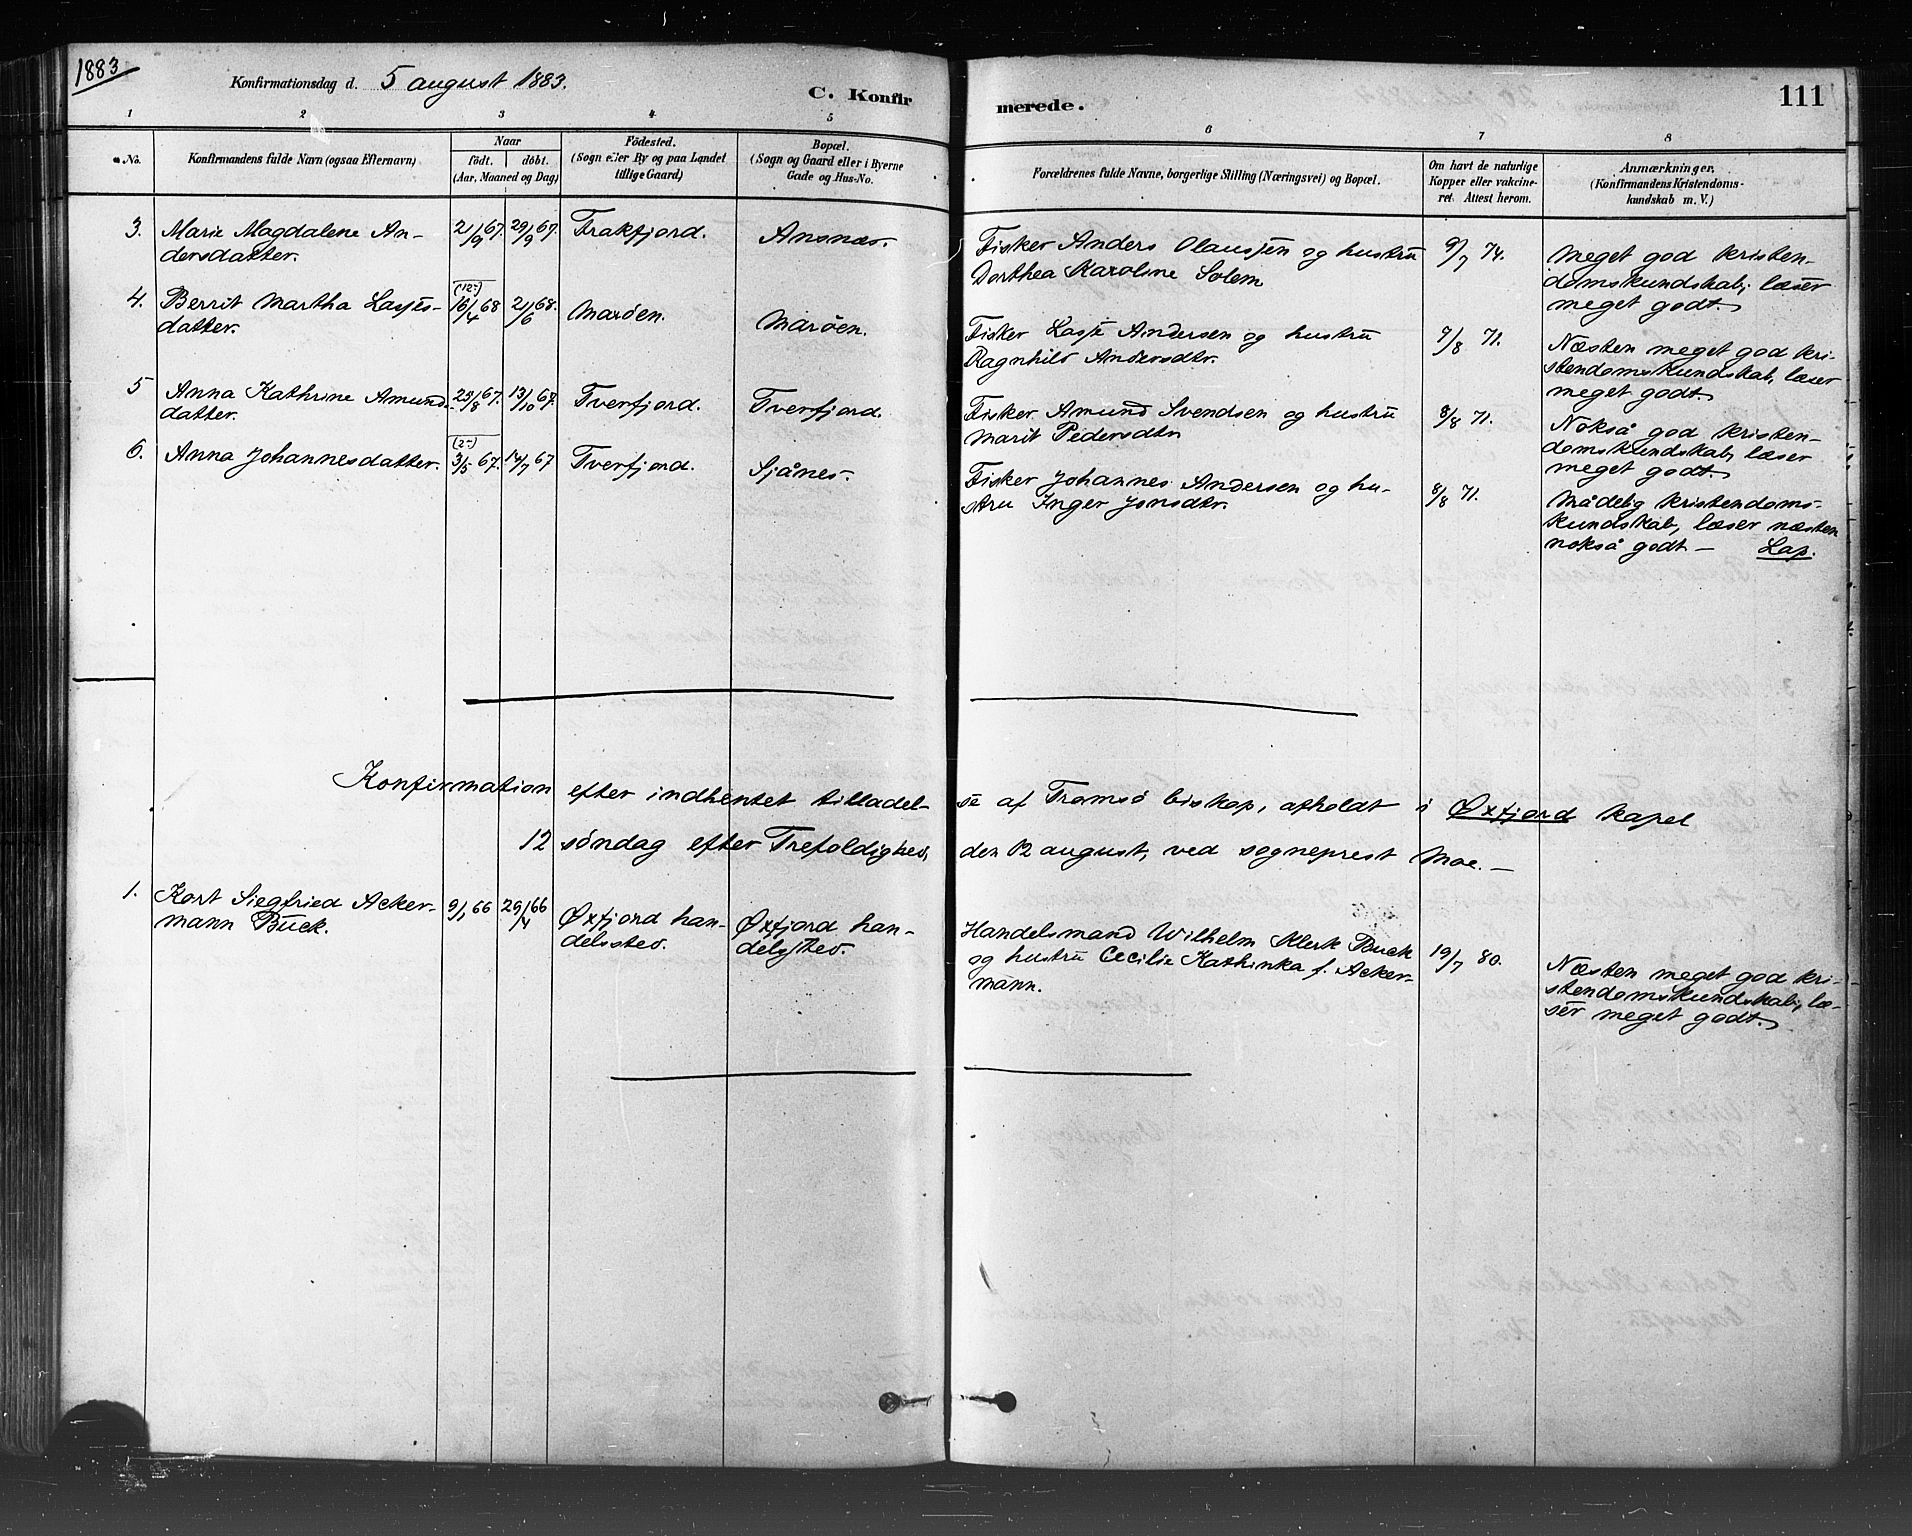 1883
Konfirmationsdag d. 5 august 1883.
C. Konfirmerede.
111
1 2 3 4 5 6 7 8
No.
Konfirmandens fulde Navn (ogsaa Efternavn)
Naar
födt. döbt.
(Aar, Maaned og Dag)
Födested.
(Sogn eller By og paa Landet
tillige Gaard)
Bopæl.
(Sogn og Gaard eller i Byerne
Gade og Hus-No.
Forældrenes fulde Navne, borgerlige Stilling (Næringsvei) og Bopæl.
Om havt de naturlige
Kopper eller vakcine-
ret. Attest herom.
Anmærkninger.
(Konfirmandens Kristendoms-
kundskab m. V.)
3. Marie Magdalene An-
dersdatter.
21/9 67. 29/9 67. Frakfjord. Ansnæs.
Fisker Anders Olaussen og hustru
Dorthea Karoline Solem
9/7 74.
Meget god kristen-
domskundskab; læser
meget godt.
4. Berrit Martha Lasses-
datter.
(12-)
16/4 68 21/6 68. Marøen. Marøen.
Fisker Lasse Andersen og hustru
Ragnhild Andersdtr.
7/8 71.
Næsten meget god kri-
stendomskundskab, læser
meget godt
5 Anna Kathrine Amund-
datter.
23/8 67. 13/10 67. Tverfjord. Tverfjord.
Fisker Amund Svendsen og hustru
Marit Pedersdtr
8/8 71.
Nokså god kristen-
domskundskab, læser
meget godt
6. Anna Johannesdatter.
(2-)
3/5 67. 14/7 67 Tverfjord. Sjånes.
Fisker Johannes Andersen og hu-
stru Inger Jonsdtr.
8/8 71.
Mådelig kristendoms-
kundskab, læser næsten
nokså godt — Lap.
Konfirmation efter indhentet tilladel-
se af Tromsø biskop, afholdt i Øxfjord kapel
12 søndag efter Trefoldighed,
den 12 august, ved sogneprest Moe. —
1. Kort Siegfried Acker-
mann Buck.
9/1 66 29/4 66
Øxfjord han-
delssted.
Øxfjord han-
delssted.
Handelsmand Wilhelm Klerk Buck
og hustru Cecilie Kathinka f. Acker-
mann.
19/7 80.
Næsten meget god kri-
stendomskundskab, læ-
ser meget godt.